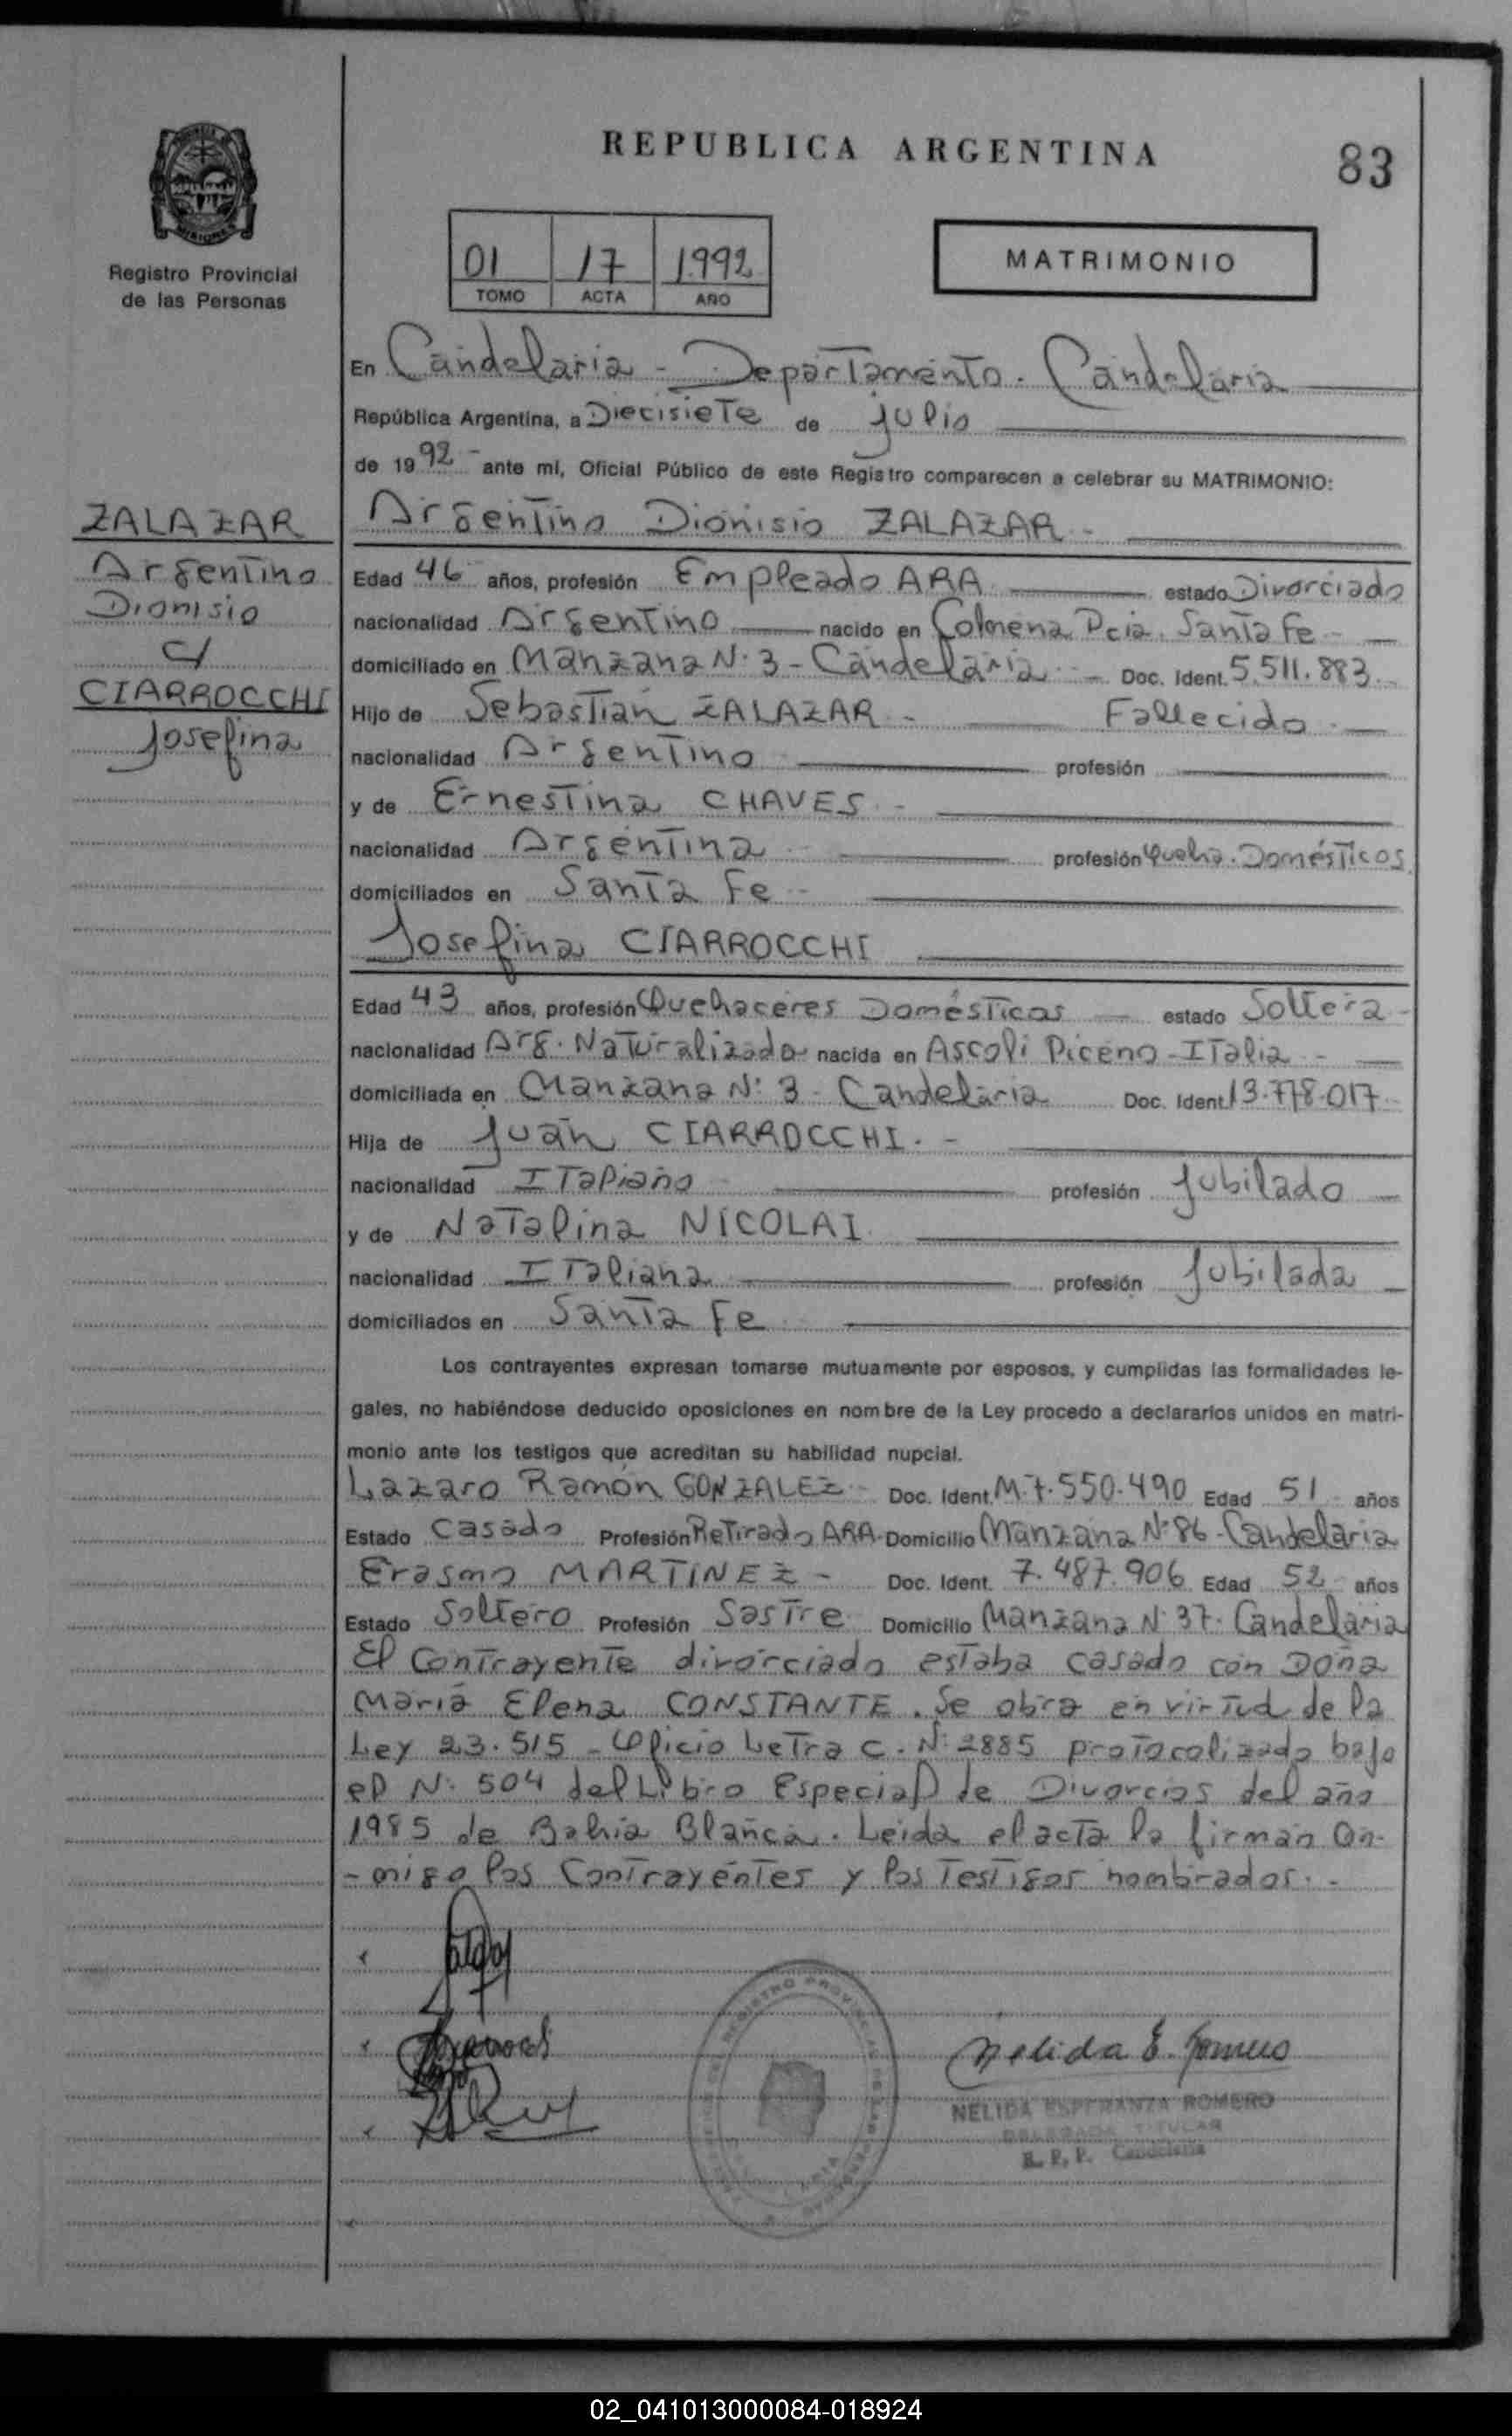 REPUBLICA ARGENTINA
83
Registro Provincial
de las Personas
01 17 1992
TOMO ACTA AÑO
MATRIMONIO
En Candelaria - Departamento. Candelaria
República Argentina, a Diecisiete de julio
de 19 92 - ante mí, Oficial Público de este Registro comparecen a celebrar su MATRIMONIO:
ZALAZAR
Argentino
Dionisio
c/
CIARROCCHI
Josefina
Argentino Dionisio ZALAZAR -
Edad 46 años, profesión Empleado ARA estado Divorciado
nacionalidad Argentino nacido en Colmena Pcia. Santa Fe -
domiciliado en Manzana N: 3 - Candelaria - Doc. Ident. 5.511.883.
Hijo de Sebastián ZALAZAR - Fallecido
nacionalidad Argentino profesión
y de Ernestina CHAVES -
nacionalidad Argentina profesión Queha. Domésticos
domiciliados en Santa Fe -
Josefina CIARROCCHI
Edad 43 años, profesión Quehaceres Domésticos estado Soltera -
nacionalidad Arg. Naturalizada nacida en Ascoli Piceno - Italia -
domiciliada en Manzana N: 3 - Candelaria Doc. Ident. 13.778.017
Hija de Juan CIARROCCHI. -
nacionalidad Italiano profesión Jubilado
y de Natalina NICOLAI
nacionalidad Italiana profesión Jubilada
domiciliados en Santa Fe
Los contrayentes expresan tomarse mutuamente por esposos, y cumplidas las formalidades le-
gales, no habiéndose deducido oposiciones en nombre de la Ley procedo a declararlos unidos en matri-
monio ante los testigos que acreditan su habilidad nupcial.
Lazaro Ramón GONZALEZ - Doc. Ident. M.7.550.490 Edad 51 años
Estado Casado Profesión Retirado ARA. Domicilio Manzana N: 86 - Candelaria
Erasmo MARTINEZ - Doc. Ident. 7.487.906 Edad 52 años
Estado Soltero Profesión Sastre Domicilio Manzana N: 37. Candelaria
El Contrayente divorciado estaba casado con Doña
María Elena CONSTANTE. Se obra en virtud de la
Ley 23.515 - Oficio Letra C. N: 2885 protocolizado bajo
el N: 504 del Libro Especial de Divorcios del año
1985 de Bahía Blanca. Leida el acta la firman Con-
-migo los Contrayentes y los Testigos nombrados. -
Nelida E. Romero
NELIDA ESPERANZA ROMERO
DELEGADA TITULAR
R. P. P. Candelaria
02_041013000084-018924